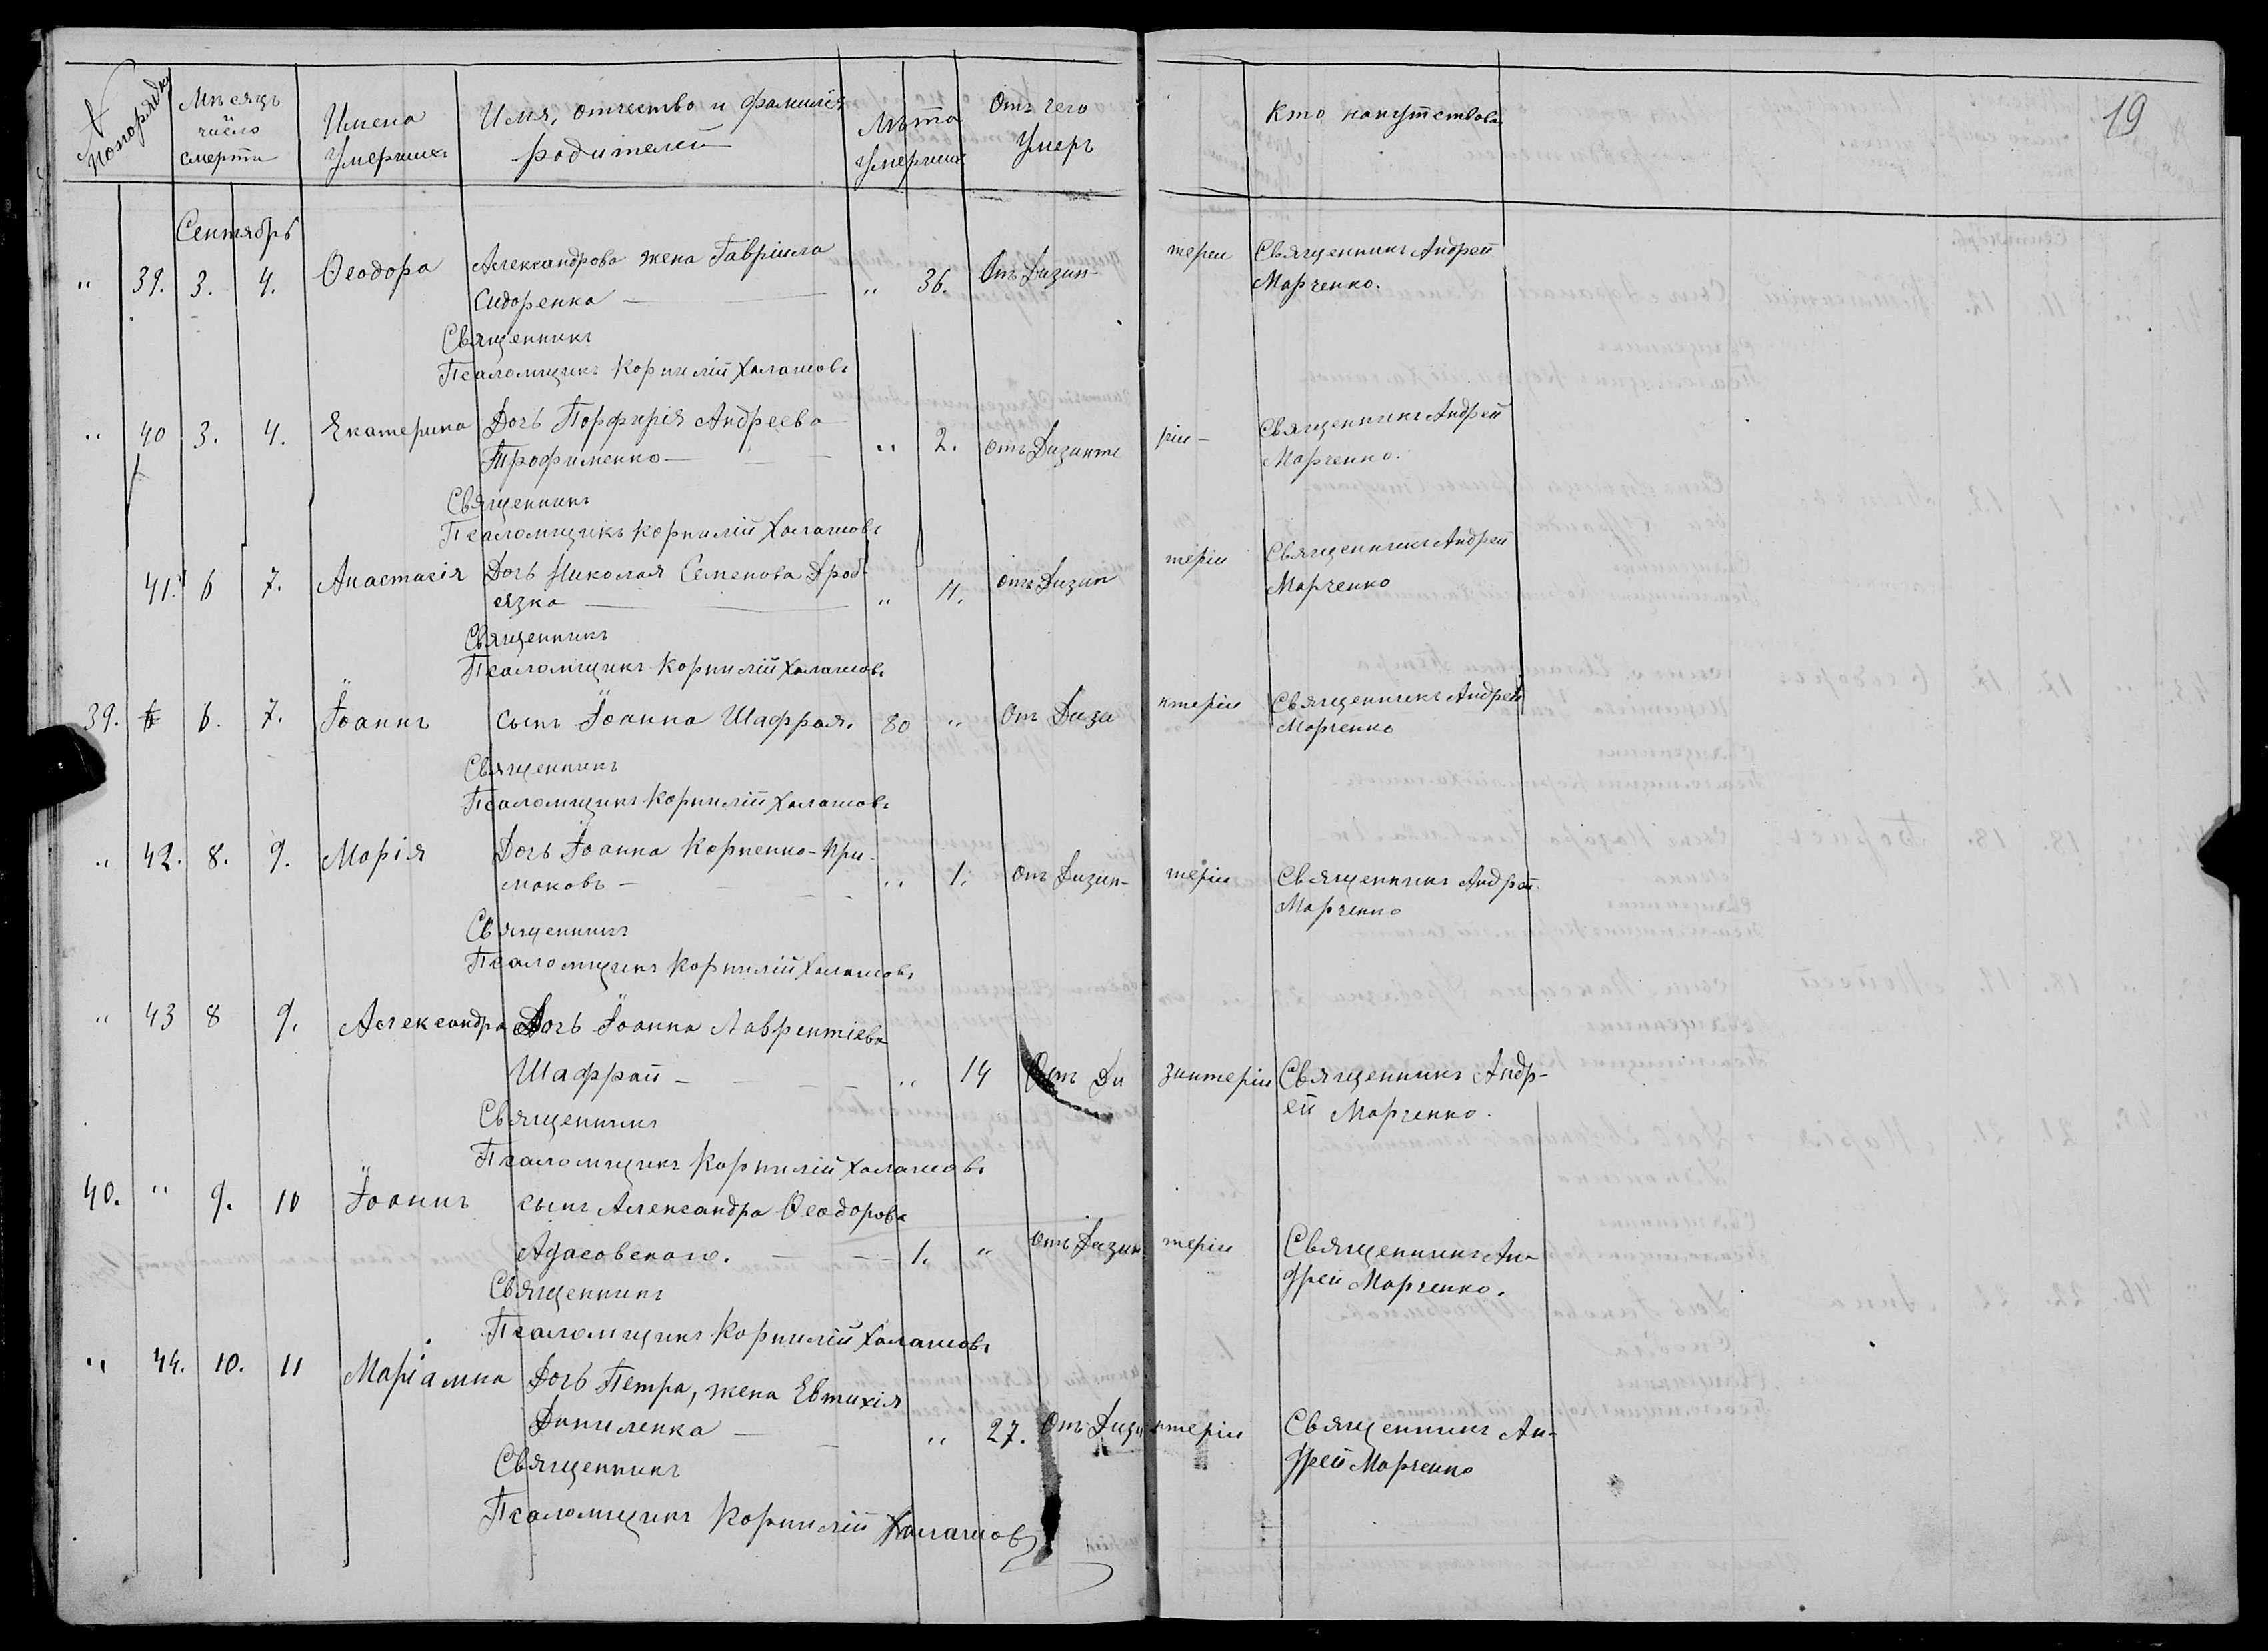 19
№ попорядку
Мѣсяцъ число смерти
Имена Умершихъ
Имя, отчество и фамилія родителей
Лѣта Умершихъ
Отъ чего Умеръ
Кто напутствова
Сентябрь
" 39. 3. 4. Ѳеодора Александрова жена Гавріила " 36. Отъ Дизин- теріи Священникъ Андрей
Сидоренка — Марченко.
Священникъ
Псаломщикъ Корнилій Халашовъ
" 40 3. 4. Екатерина Дочь Порфирія Андреева " 2. отъ Дизинте ріи — Священникъ Андрей
Трофименко — Марченко.
Священникъ
Псаломщикъ Корнилій Халашовъ
41. 6 7. Анастасія Дочь Николая Семенова Дроб- " 11. отъ Дизин теріи Священникъ Андрей
язка — Марченко
Священникъ
Псаломщикъ Корнилій Халашовъ
39. 6. 7. Іоаннъ сынъ Іоанна Шафрая. 80 " Отъ Дизи нтеріи Священникъ Андрей
Марченко
Священникъ
Псаломщикъ Корнилій Халашовъ
" 42. 8. 9. Марія Дочь Іоанна Корненко-При- " 1. отъ Дизин- теріи Священникъ Андрей
маковъ — Марченко
Священникъ
Псаломщикъ Корнилій Халашовъ
" 43 8 9. Александра Дочь Іоанна Лаврентіева
Шафрай — " 14 Отъ Ди зинтеріи Священникъ Андр-
ей Марченко.
Священникъ
Псаломщикъ Корнилій Халашовъ
40. " 9. 10 Іоаннъ сынъ Александра Ѳеодорова
Адасовскаго. — 1. " отъ Дизин- теріи Священникъ Ан-
дрей Марченко.
Священникъ
Псаломщикъ Корнилій Халашовъ
" 44. 10. 11 Маріамна Дочь Петра, жена Евтихія
Даниленка — " 27. Отъ Дизи нтеріи Священникъ Ан-
дрей Марченко
Священникъ
Псаломщикъ Корнилій Халашовъ